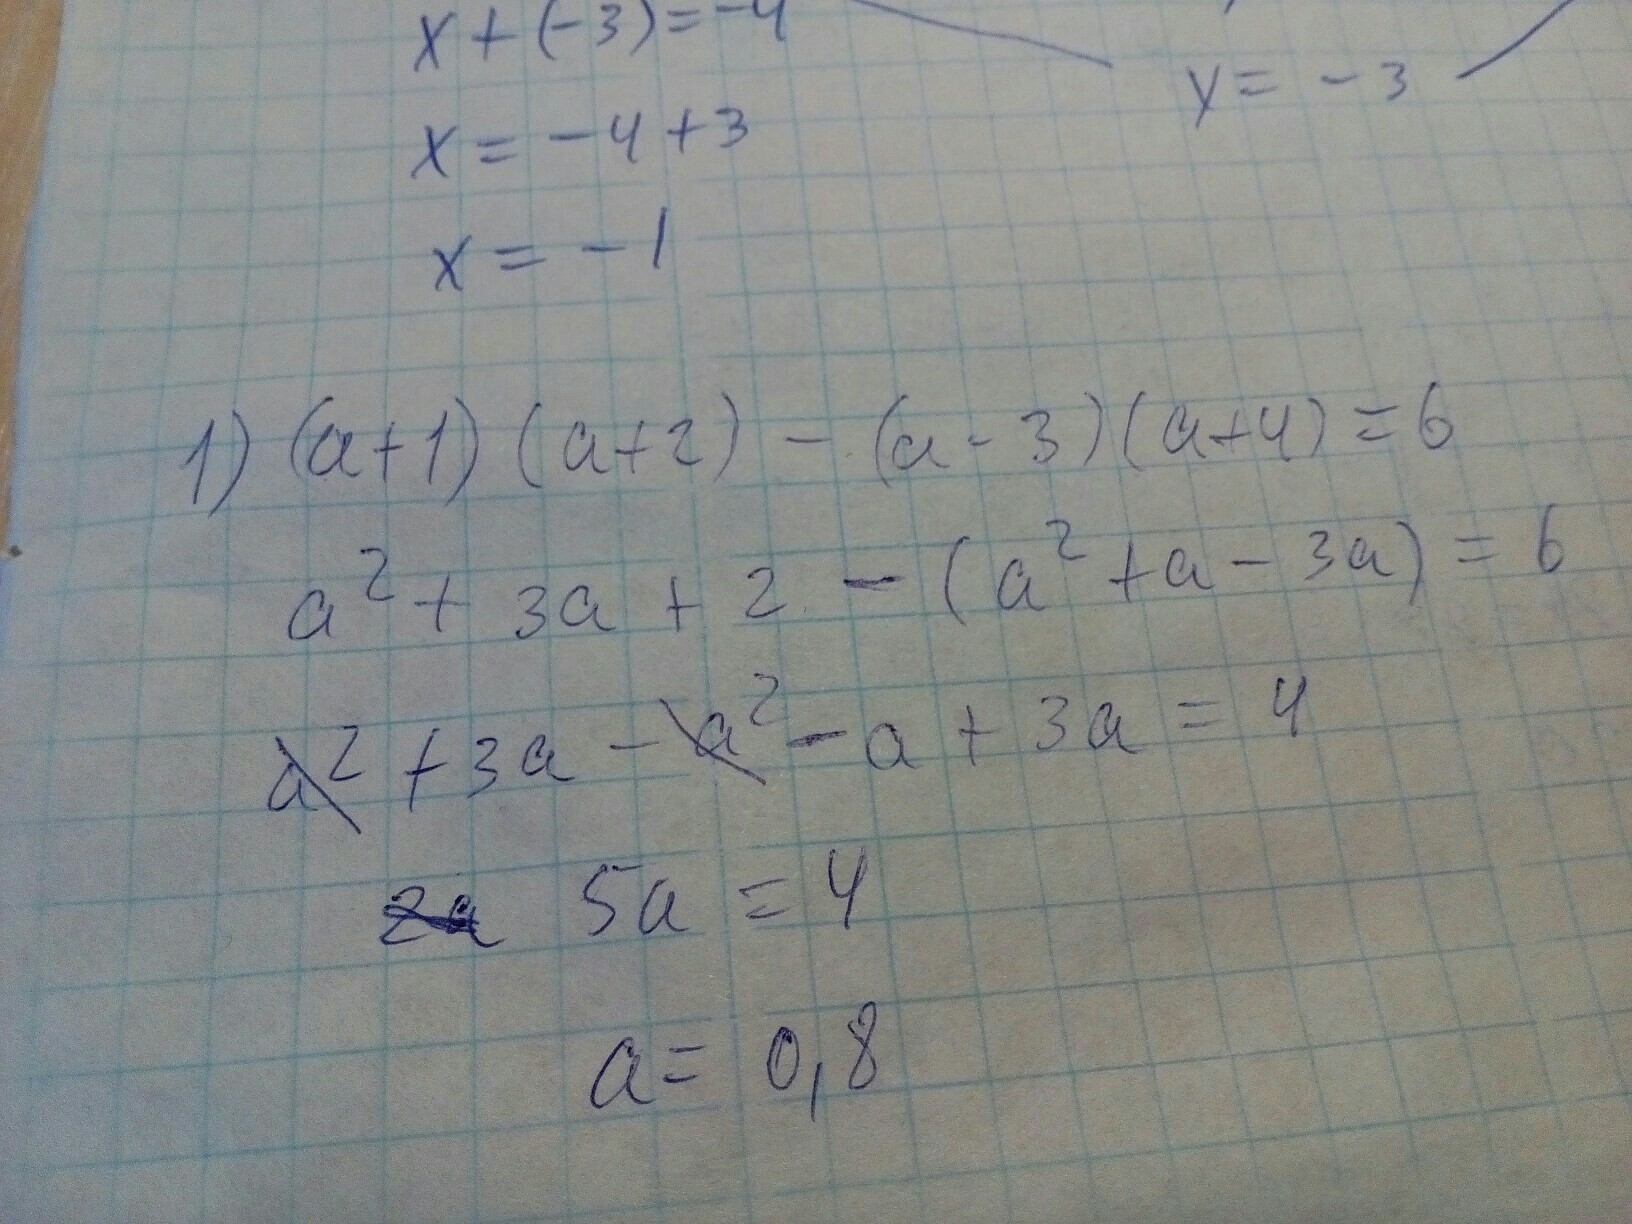 x + (-3) = -4
y = - 3
x = -4 + 3
x = -1
1) (a+1) (a+2) - (a-3)(a+4) = 6
a² + 3a + 2 - (a² + a - 3a) = 6
a² + 3a - a² - a + 3a = 4
2a 5a = 4
a = 0,8